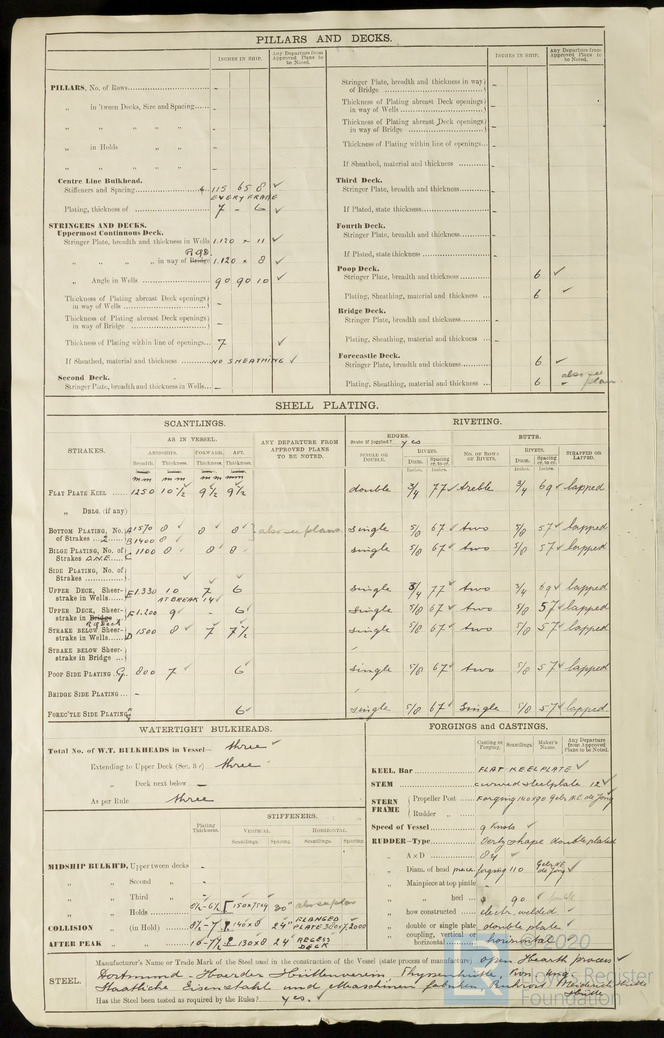 PILLARS AND DECKS.
INCHES IN SHIP.
Any Departure from Approved Plans to be Noted.
PILLARS, No. of Rows
„ in 'tween Decks, Size and Spacing
„ „ „ „
„ in Holds „
„ „ „ „
Centre Line Bulkhead.
Stiffeners and Spacing 115 65 8 ✓
EVERY FRAME
Plating, thickness of 7 - 6 ✓
STRINGERS AND DECKS.
Uppermost Continuous Deck.
Stringer Plate, breadth and thickness in Wells 1.120 × 11 ✓
„ „ „ „ in way of Bridge 1.120 × 8 ✓
„ Angle in Wells 90 90 10 ✓
Thickness of Plating abreast Deck openings in way of Wells -
Thickness of Plating abreast Deck openings in way of Bridge -
Thickness of Plating within line of openings 7 ✓
If Sheathed, material and thickness NO SHEATHING ✓
Second Deck.
Stringer Plate, breadth and thickness in Wells -
INCHES IN SHIP.
Any Departure from Approved Plans to be Noted.
Stringer Plate, breadth and thickness in way of Bridge -
Thickness of Plating abreast Deck openings in way of Wells -
Thickness of Plating abreast Deck openings in way of Bridge -
Thickness of Plating within line of openings -
If Sheathed, material and thickness -
Third Deck.
Stringer Plate, breadth and thickness -
If Plated, state thickness -
Fourth Deck.
Stringer Plate, breadth and thickness -
If Plated, state thickness -
Poop Deck.
Stringer Plate, breadth and thickness 6 ✓
Plating, Sheathing, material and thickness 6 ✓
Bridge Deck.
Stringer Plate, breadth and thickness -
Plating, Sheathing, material and thickness -
Forecastle Deck.
Stringer Plate, breadth and thickness 6 ✓
Plating, Sheathing, material and thickness 6 ✓ also see plan
SHELL PLATING.
SCANTLINGS.
RIVETING.
STRAKES.
AS IN VESSEL.
AMIDSHIPS. FORWARD. AFT.
Breadth. Thickness. Thickness. Thickness.
mm mm mm mm
ANY DEPARTURE FROM APPROVED PLANS TO BE NOTED.
EDGES.
State if joggled? yes
SINGLE OR DOUBLE.
RIVETS.
Diam. Spacing cr. to cr.
BUTTS.
No. of Rows of Rivets.
RIVETS.
Diam. Spacing cr. to cr.
STRAPPED OR LAPPED.
FLAT PLATE KEEL 1250 10½ 9½ 9½ double 3/4 77 ✓ treble 3/4 69 ✓ lapped
„ DBLG. (if any)
BOTTOM PLATING, No. of Strakes 2 A 1570 8 8 8 also see plans single 5/8 67 ✓ two 5/8 57 ✓ lapped
B 1400 8
BILGE PLATING, No. of Strakes ONE C 1100 8 8 8 single 5/8 67 ✓ two 5/8 57 ✓ lapped
SIDE PLATING, No. of Strakes
UPPER DECK, Sheerstrake in Wells E 1.330 10 7 6 single 3/4 77 ✓ two 3/4 69 ✓ lapped
AT BREAK 14 ✓
UPPER DECK, Sheerstrake in Bridge F 1.200 9 - 6 single 5/8 67 ✓ two 5/8 57 ✓ lapped
STRAKE BELOW Sheerstrake in Wells D 1500 8 7 7½ single 5/8 67 ✓ two 5/8 57 ✓ lapped
STRAKE BELOW Sheerstrake in Bridge
POOP SIDE PLATING G 800 7 6 single 5/8 67 ✓ two 5/8 57 ✓ lapped
BRIDGE SIDE PLATING -
FORECTLE SIDE PLATING 6 single 5/8 67 ✓ single 5/8 57 ✓ lapped
WATERTIGHT BULKHEADS.
Total No. of W.T. BULKHEADS in Vessel— three ✓
Extending to Upper Deck three ✓
„ Deck next below -
As per Rule three
Plating Thickness.
STIFFENERS.
VERTICAL. HORIZONTAL.
Scantlings. Spacing. Scantlings. Spacing.
MIDSHIP BULKH'D, Upper tween decks -
„ „ Second „ -
„ „ Third „ -
„ „ Holds 30" also see plan
COLLISION (in Hold) 24" FLANGED PLATE
AFTER PEAK „ 130×8 24" RECESS DECK
FORGINGS AND CASTINGS.
Casting or Forging. Scantlings. Maker's Name. Any Departure from Approved Plans to be Noted.
KEEL, Bar FLAT KEELPLATE ✓
STEM curved steelplate 12 ✓
STERN FRAME Propeller Post Forging 140×90 Gebr. de Jong
Rudder „
Speed of Vessel 9 knots ✓
RUDDER—Type Oertz shape double plated
„ A × D 84 ✓
„ Diam. of head forging 110 Gebr. de Jong ✓
„ Mainpiece at top pintle
„ „ heel 90 ✓
„ how constructed electr. welded ✓
„ double or single plate double plate ✓
„ coupling, vertical or horizontal horizontal ✓
STEEL.
Manufacturer's Name or Trade Mark of the Steel used in the construction of the Vessel (state process of manufacture) open Hearth process ✓
Dortmund - Hoerder Hüttenverein, Thyssenhütte,
Staatliche Eisenstahl und Maschinen fabriken, Ruhrort
Has the Steel been tested as required by the Rules? yes. ✓
2020
Lloyd's Register
Foundation